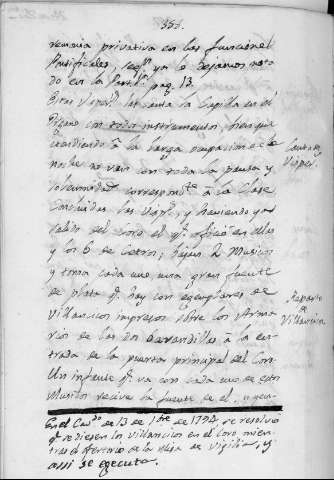 353.
remnia privativa en las funciones
Pontificales, segn. ya lo dejamos nota
do en la Part. pag. 13.
Estas Visper. las canta la Capilla en el
Organo con todos instrumentos, bien que
atendiendo à la larga ocupacion de la
noche no van con toda la pausa y
solemnidad correspondte. à la Clase
Concluidas las Visps., y haviendo ya
salido del coro el qe. ofició en ellas
y los 6 de Cetros, bajan 2 Musicos
y toma cada uno una gran fuente
de plata qe. hay con egemplares de
Villancicos impresos sobre los Arma
rios de las dos barandillas à la en-
trada de la puerta principal del Coro.
Un infante qe. va con cada uno de estos
Musicos recive la fuente de el, y
Cantan
Visper.
Reparto
de
Villancicos
En el Cavdo. de 13 de 1bre. de 1792 se resolvió
qe. se diesen los Villancicos en el Coro mien-
tras el Ofertorio de la Misa de Vigilia, y
assi se egecuta.